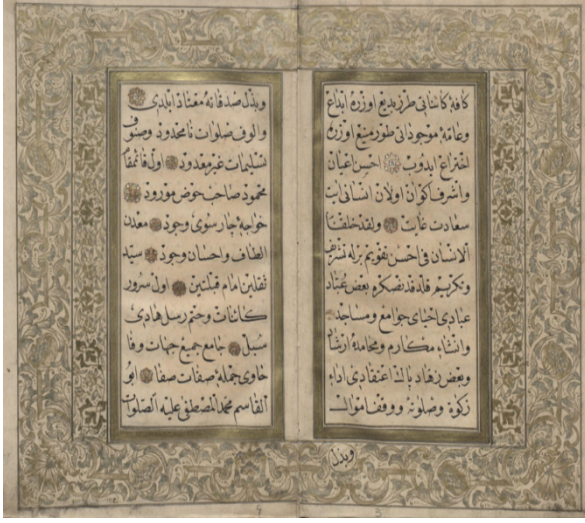 كافهٔ كائناتى طرز بديع اوزره ابداع
وعامهٔ موجوداتى طور منيع اوزره
اختراع ايدوب احسن اعيان
واشرف اكوان اولان انسانى
سعادت ولقد خلقنا
الانسان فى احسن تقويم برله
وتكريم بعض عباد
عبادى احياى جوامع ومساجد
وانشاء مكارم ومحامده
وبعض زهاد اعتقادى اداء
زكوة وصلوته ووقف اموال
وبذل
وبذل صدقاته معتاد ايلدى
والوف صلوات نامحدود وصنوف
تسليمات غير معدود اول
محمود صاحب حوض مورود
خواجهٔ چار سوى وجود معدن
الطاف واحسان وجود سيد
ثقلين امام قبلتين اول سرور
كائنات وختم رسل هادى
سبل جامع جميع جهات وفا
حاوى جملهٔ صفات صفا ابو
القاسم محمد المصطفى عليه الصلوات
4
3